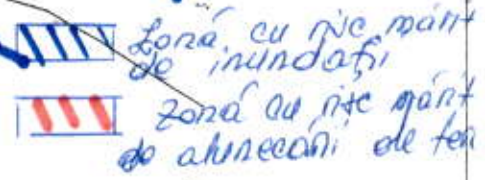 Zonă cu risc mărit
de inundații
Zonă cu risc mărit
de alunecări de ten